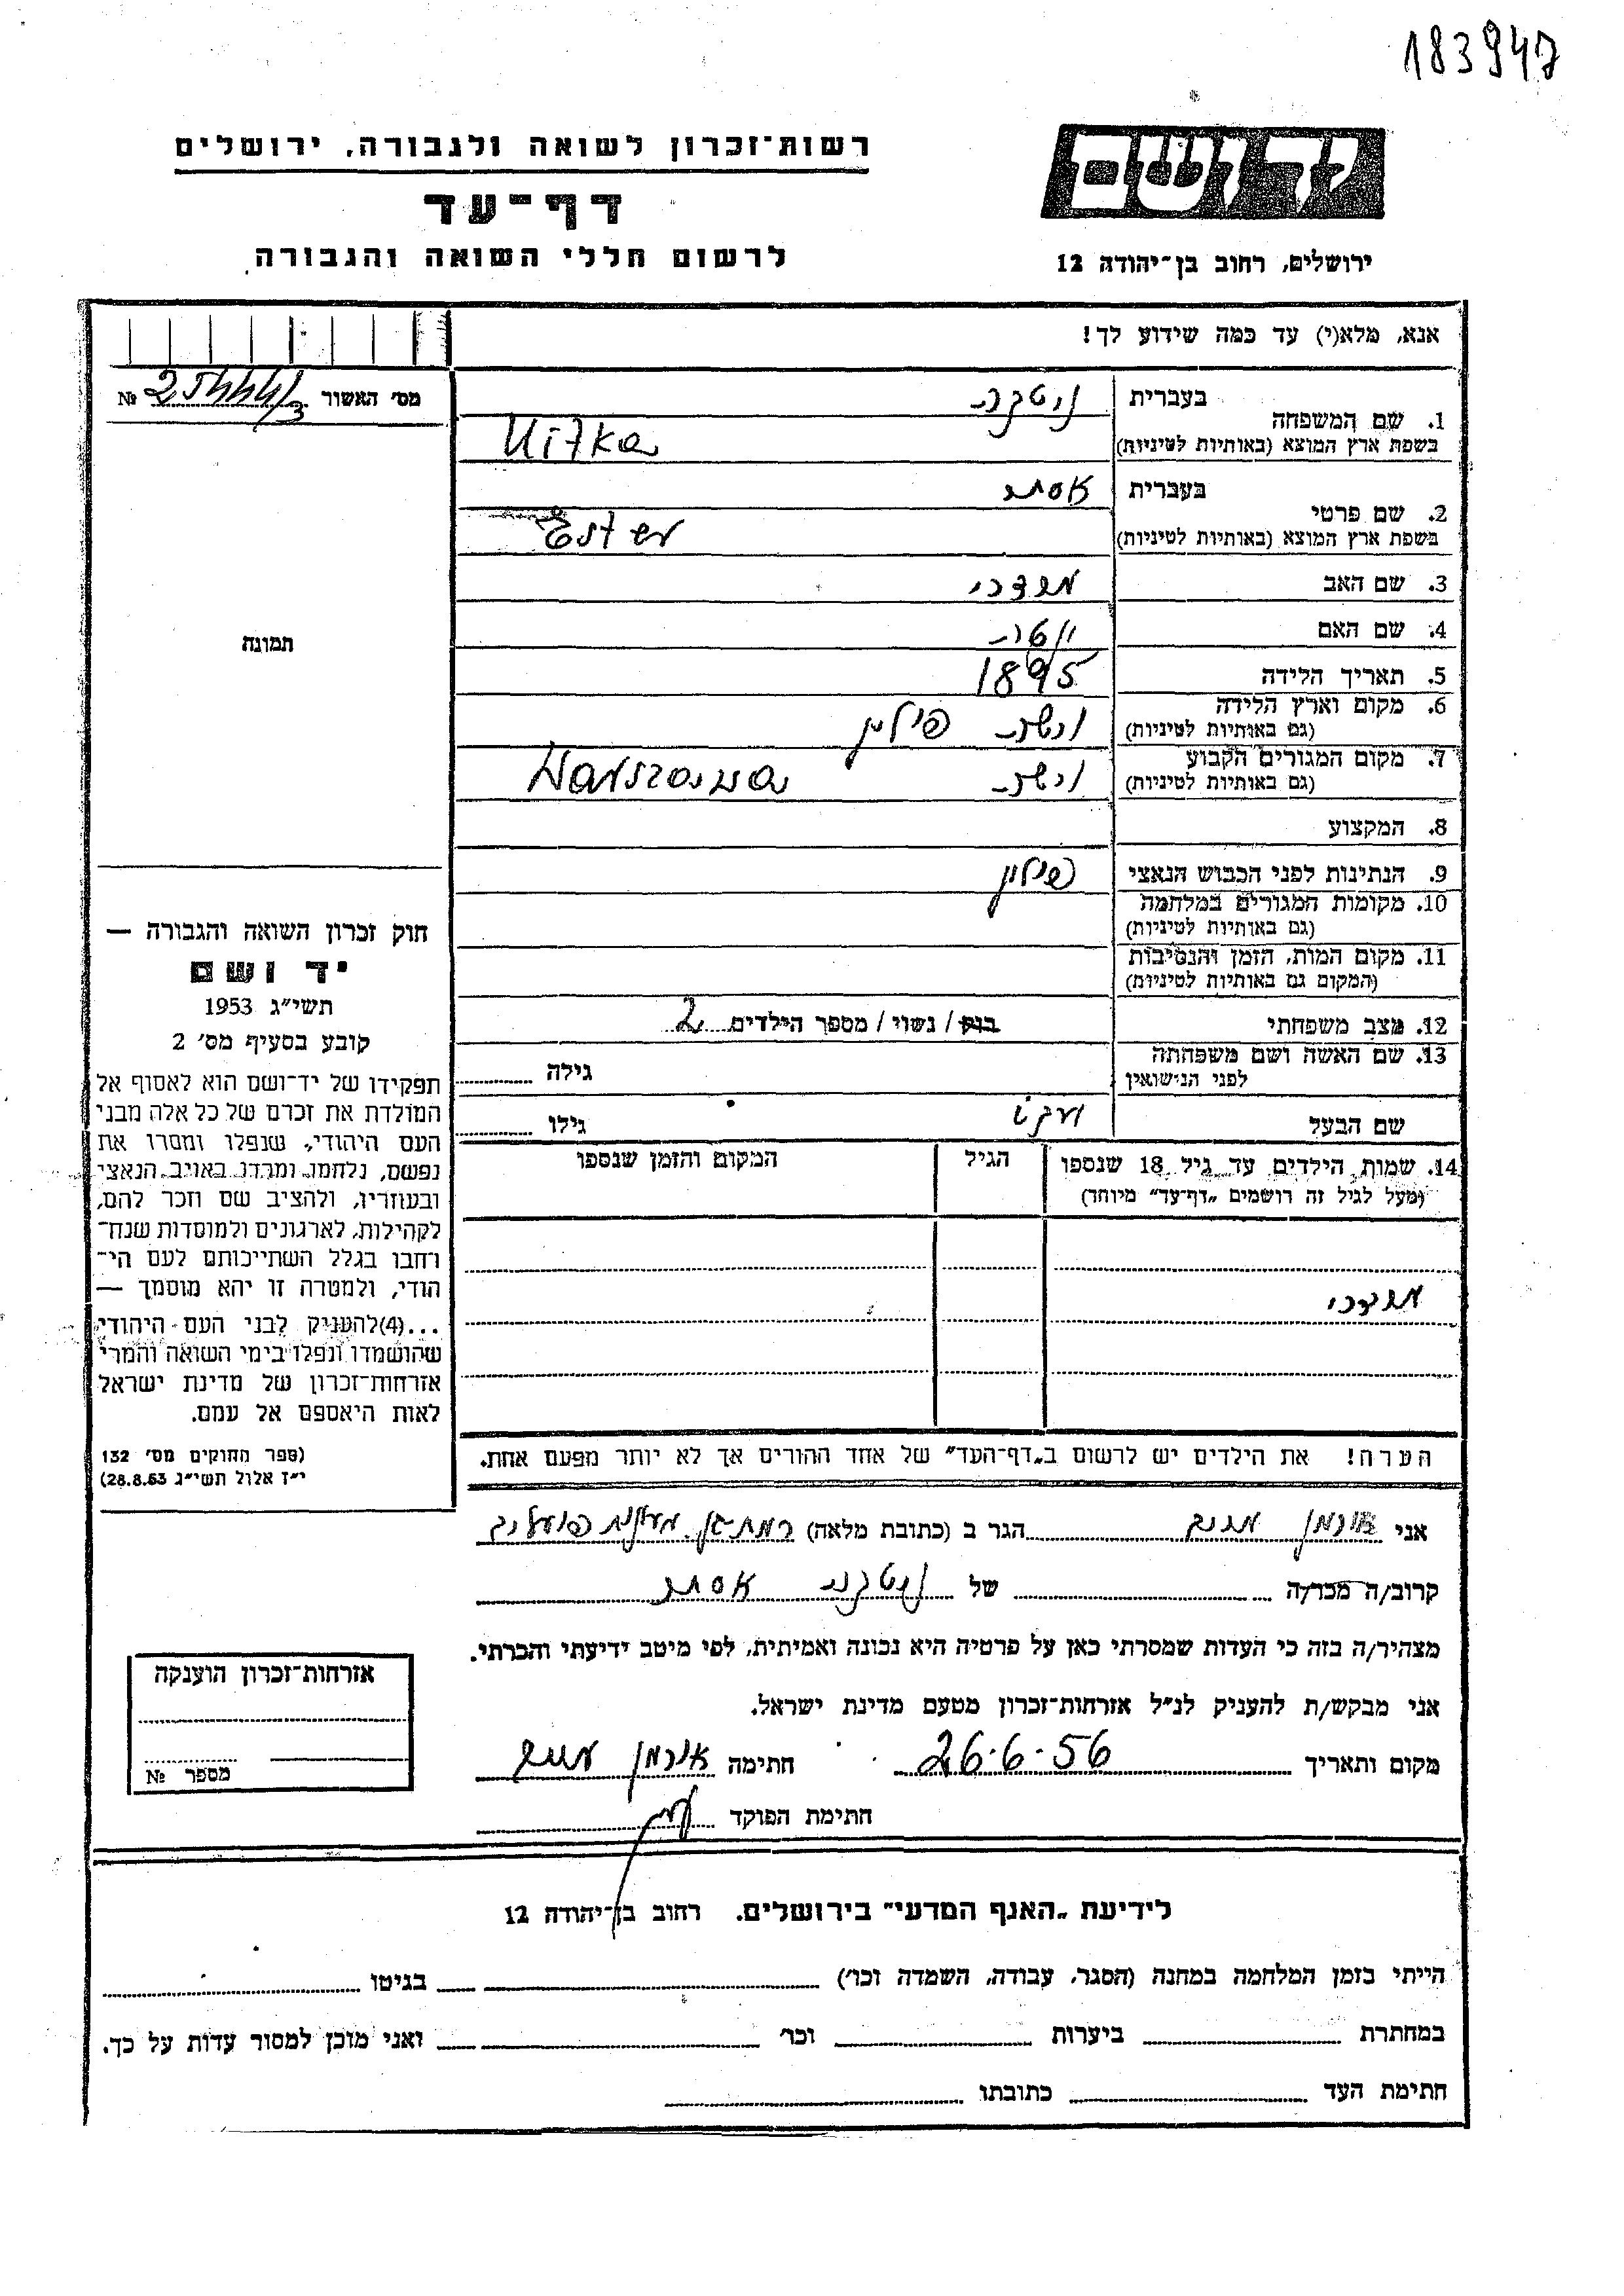 183947
רשות־זכרון לשואה ולגבורה, ירושלים
דף־עד
לרשום חללי השואה והגבורה
יד ושם
ירושלים, רחוב בן־יהודה 12
אנא, מלא(י) עד כמה שידוע לך!
מס' האשור № 25444/3
1. שם המשפחה
בעברית ניטקה
בשפת ארץ המוצא (באותיות לטיניות) Nitka
2. שם פרטי
בעברית אסתר
בשפת ארץ המוצא (באותיות לטיניות) Ester
3. שם האב מרדכי
4. שם האם
5. תאריך הלידה 1895
6. מקום וארץ הלידה
(גם באותיות לטיניות) ורשה פולין
7. מקום המגורים הקבוע
(גם באותיות לטיניות) ורשה Warszawa
8. המקצוע
9. הנתינות לפני הכבוש הנאצי פולין
10. מקומות המגורים במלחמה
(גם באותיות לטיניות)
11. מקום המות, הזמן והנסיבות
(המקום גם באותיות לטיניות)
12. מצב משפחתי רווק / נשוי / מספר הילדים 2
13. שם האשה ושם משפחתה
לפני הנישואין גילה
שם הבעל יעקב גילו
14. שמות הילדים עד גיל 18 שנספו
(מעל לגיל זה רושמים „דף־עד" מיוחד)
הגיל
המקום והזמן שנספו
מרדכי
הערה! את הילדים יש לרשום ב„דף־העד" של אחד ההורים אך לא יותר מפעם אחת.
תמונה
חוק זכרון השואה והגבורה —
יד ושם
תשי"ג 1953
קובע בסעיף מס' 2
תפקידו של יד־ושם הוא לאסוף אל
המולדת את זכרם של כל אלה מבני
העם היהודי, שנפלו ומסרו את
נפשם, נלחמו ומרדו באויב הנאצי
ובעוזריו, ולהציב שם וזכר להם,
לקהילות, לארגונים ולמוסדות שנח־
רחבו בגלל השתייכותם לעם הי־
הודי, ולמטרה זו יהא מוסמך —
...(4)להעניק לבני העם היהודי
שהושמדו ונפלו בימי השואה והמרי
אזרחות־זכרון של מדינת ישראל
לאות היאספם אל עמם.
(ספר החוקים מס' 132
י"ז אלול תשי"ג 28.8.53)
אני הגר ב (כתובת מלאה) רמת־גן
קרוב/ה מכר/ה של ניטקה אסתר
מצהיר/ה בזה כי העדות שמסרתי כאן על פרטיה היא נכונה ואמיתית, לפי מיטב ידיעתי והכרתי.
אני מבקש/ת להעניק לנ"ל אזרחות־זכרון מטעם מדינת ישראל.
מקום ותאריך 26.6.56 חתימה
חתימת הפוקד
אזרחות־זכרון הוענקה
מספר №
לידיעת „האגף המדעי" בירושלים. רחוב בן־יהודה 12
הייתי בזמן המלחמה במחנה (הסגר, עבודה, השמדה וכו') בגיטו
במחתרת ביערות וכו' ואני מוכן למסור עדות על כך.
חתימת העד כתובתו